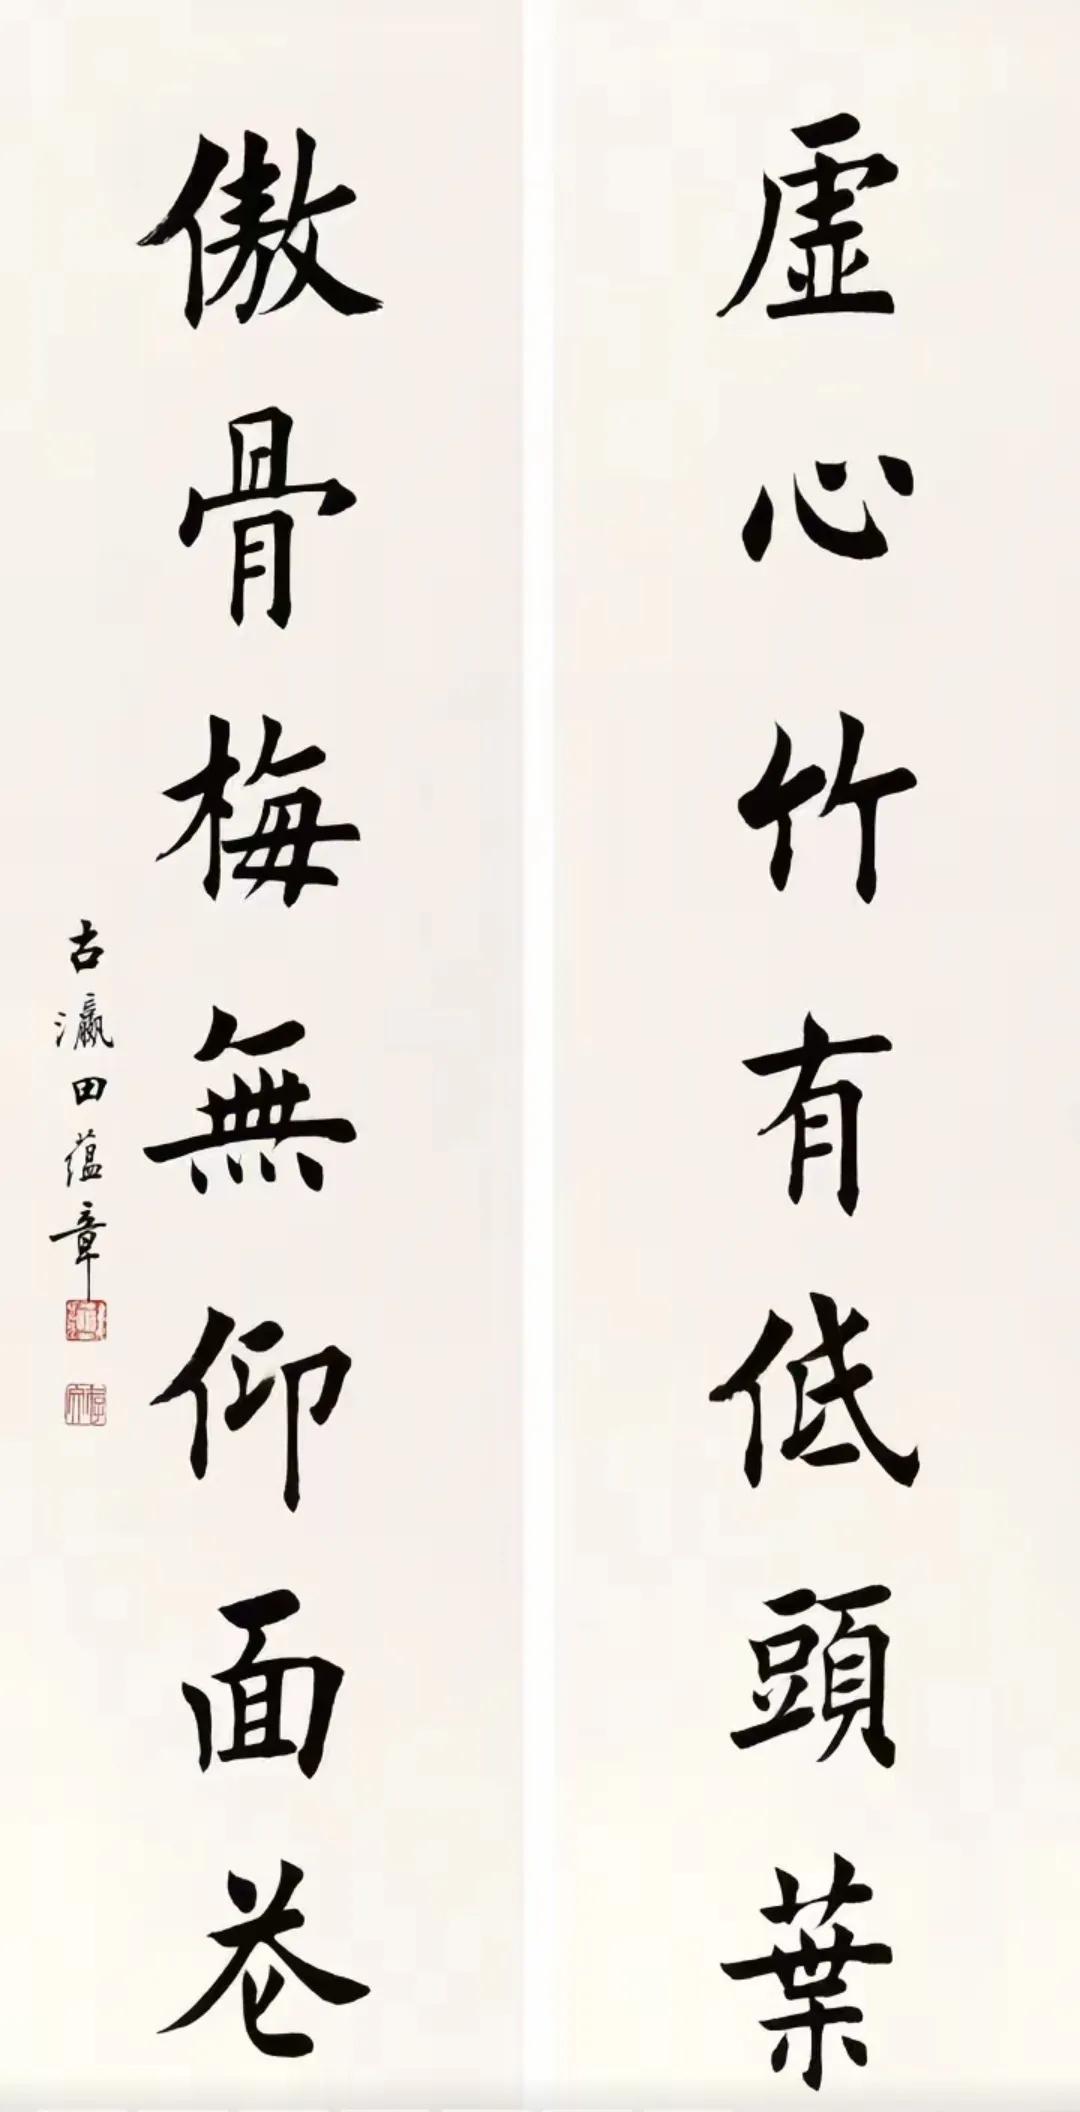 虛心竹有低頭葉
傲骨梅無仰面花
古瀛田蘊章